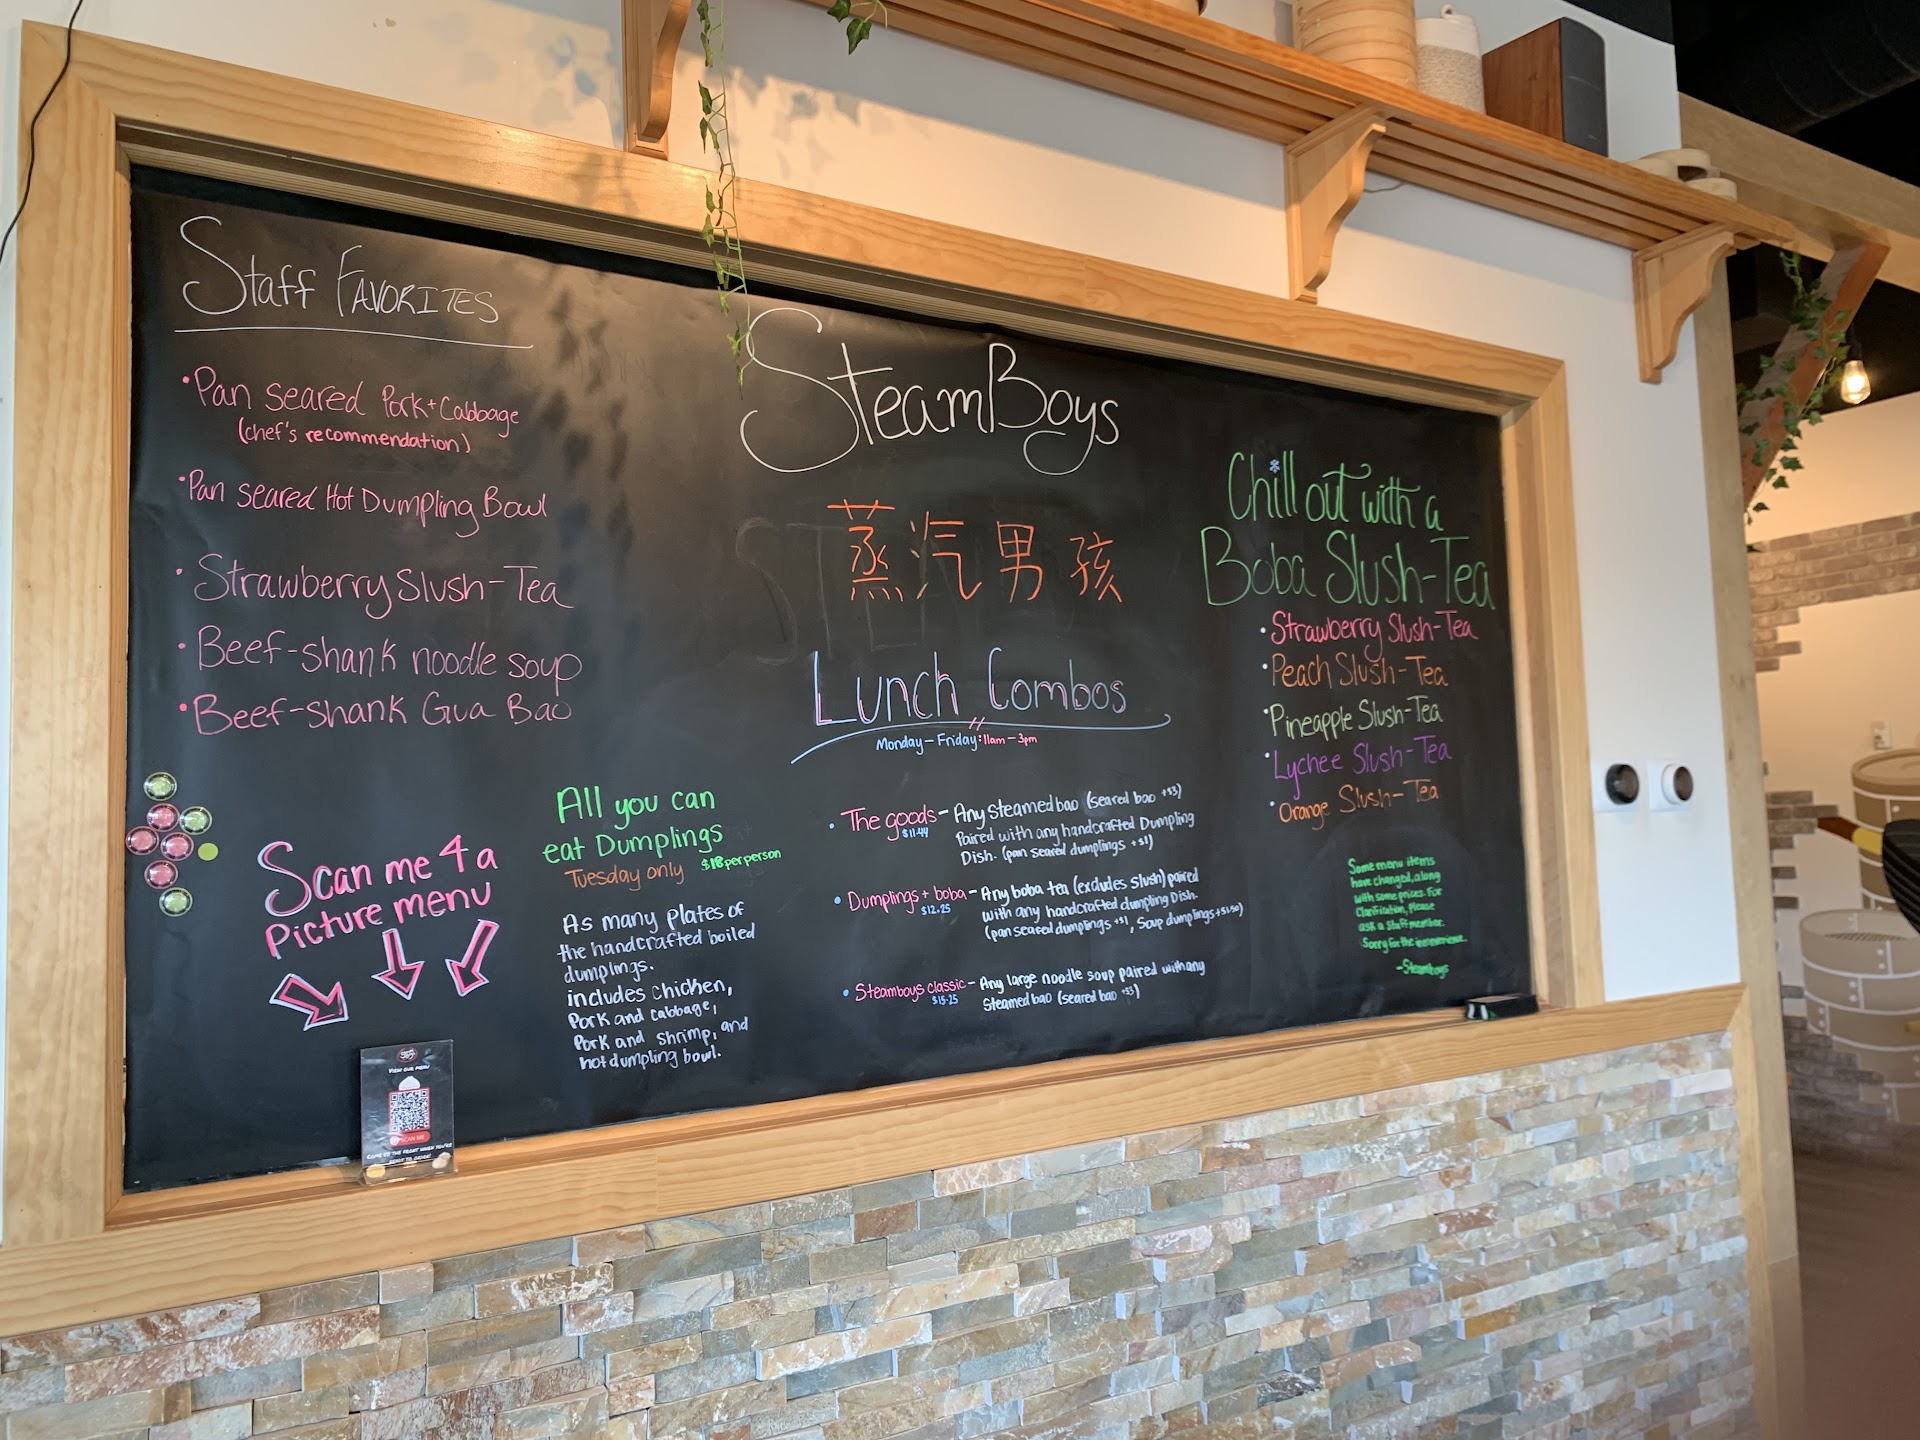 Staff FAVORITES
•Pan seared Pork+Cabbage
(chef's recommendation)
•Pan seared Hot Dumpling Bowl
•Strawberry Slush-Tea
•Beef-shank noodle soup
•Beef-shank Gua Bao
Scan me 4 a
Picture menu
VIEW OUR MENU
SCAN ME
COME TO THE FRONT WHEN YOU'RE
READY TO ORDER!
All you can
eat Dumplings
Tuesday only $18 per person
As many plates of
the handcrafted boiled
dumplings.
includes Chicken,
Pork and cabbage,
Pork and shrimp, and
hot dumpling bowl.
SteamBoys
蒸汽男孩
Lunch Combos
Monday-Friday: 11am-3pm
• The goods - Any steamed bao (seared bao +$3)
$11.44 Paired with any handcrafted Dumpling
Dish. (pan seared dumplings +$1)
• Dumplings + boba - Any boba tea (excludes slush) paired
$12.25 with any handcrafted dumpling Dish.
(pan seared dumplings +$1, Soup dumplings +$1.50)
• Steamboys classic - Any large noodle soup paired with any
$15.25 Steamed bao (seared bao +$3)
Chill out with a
Boba Slush-Tea
•Strawberry Slush-Tea
•Peach Slush-Tea
•Pineapple Slush-Tea
•Lychee Slush-Tea
•Orange Slush-Tea
Some menu items
have changed, along
with some prices. For
Clarification, please
ask a Staff member.
Sorry for the inconvenience.
-Steamboys